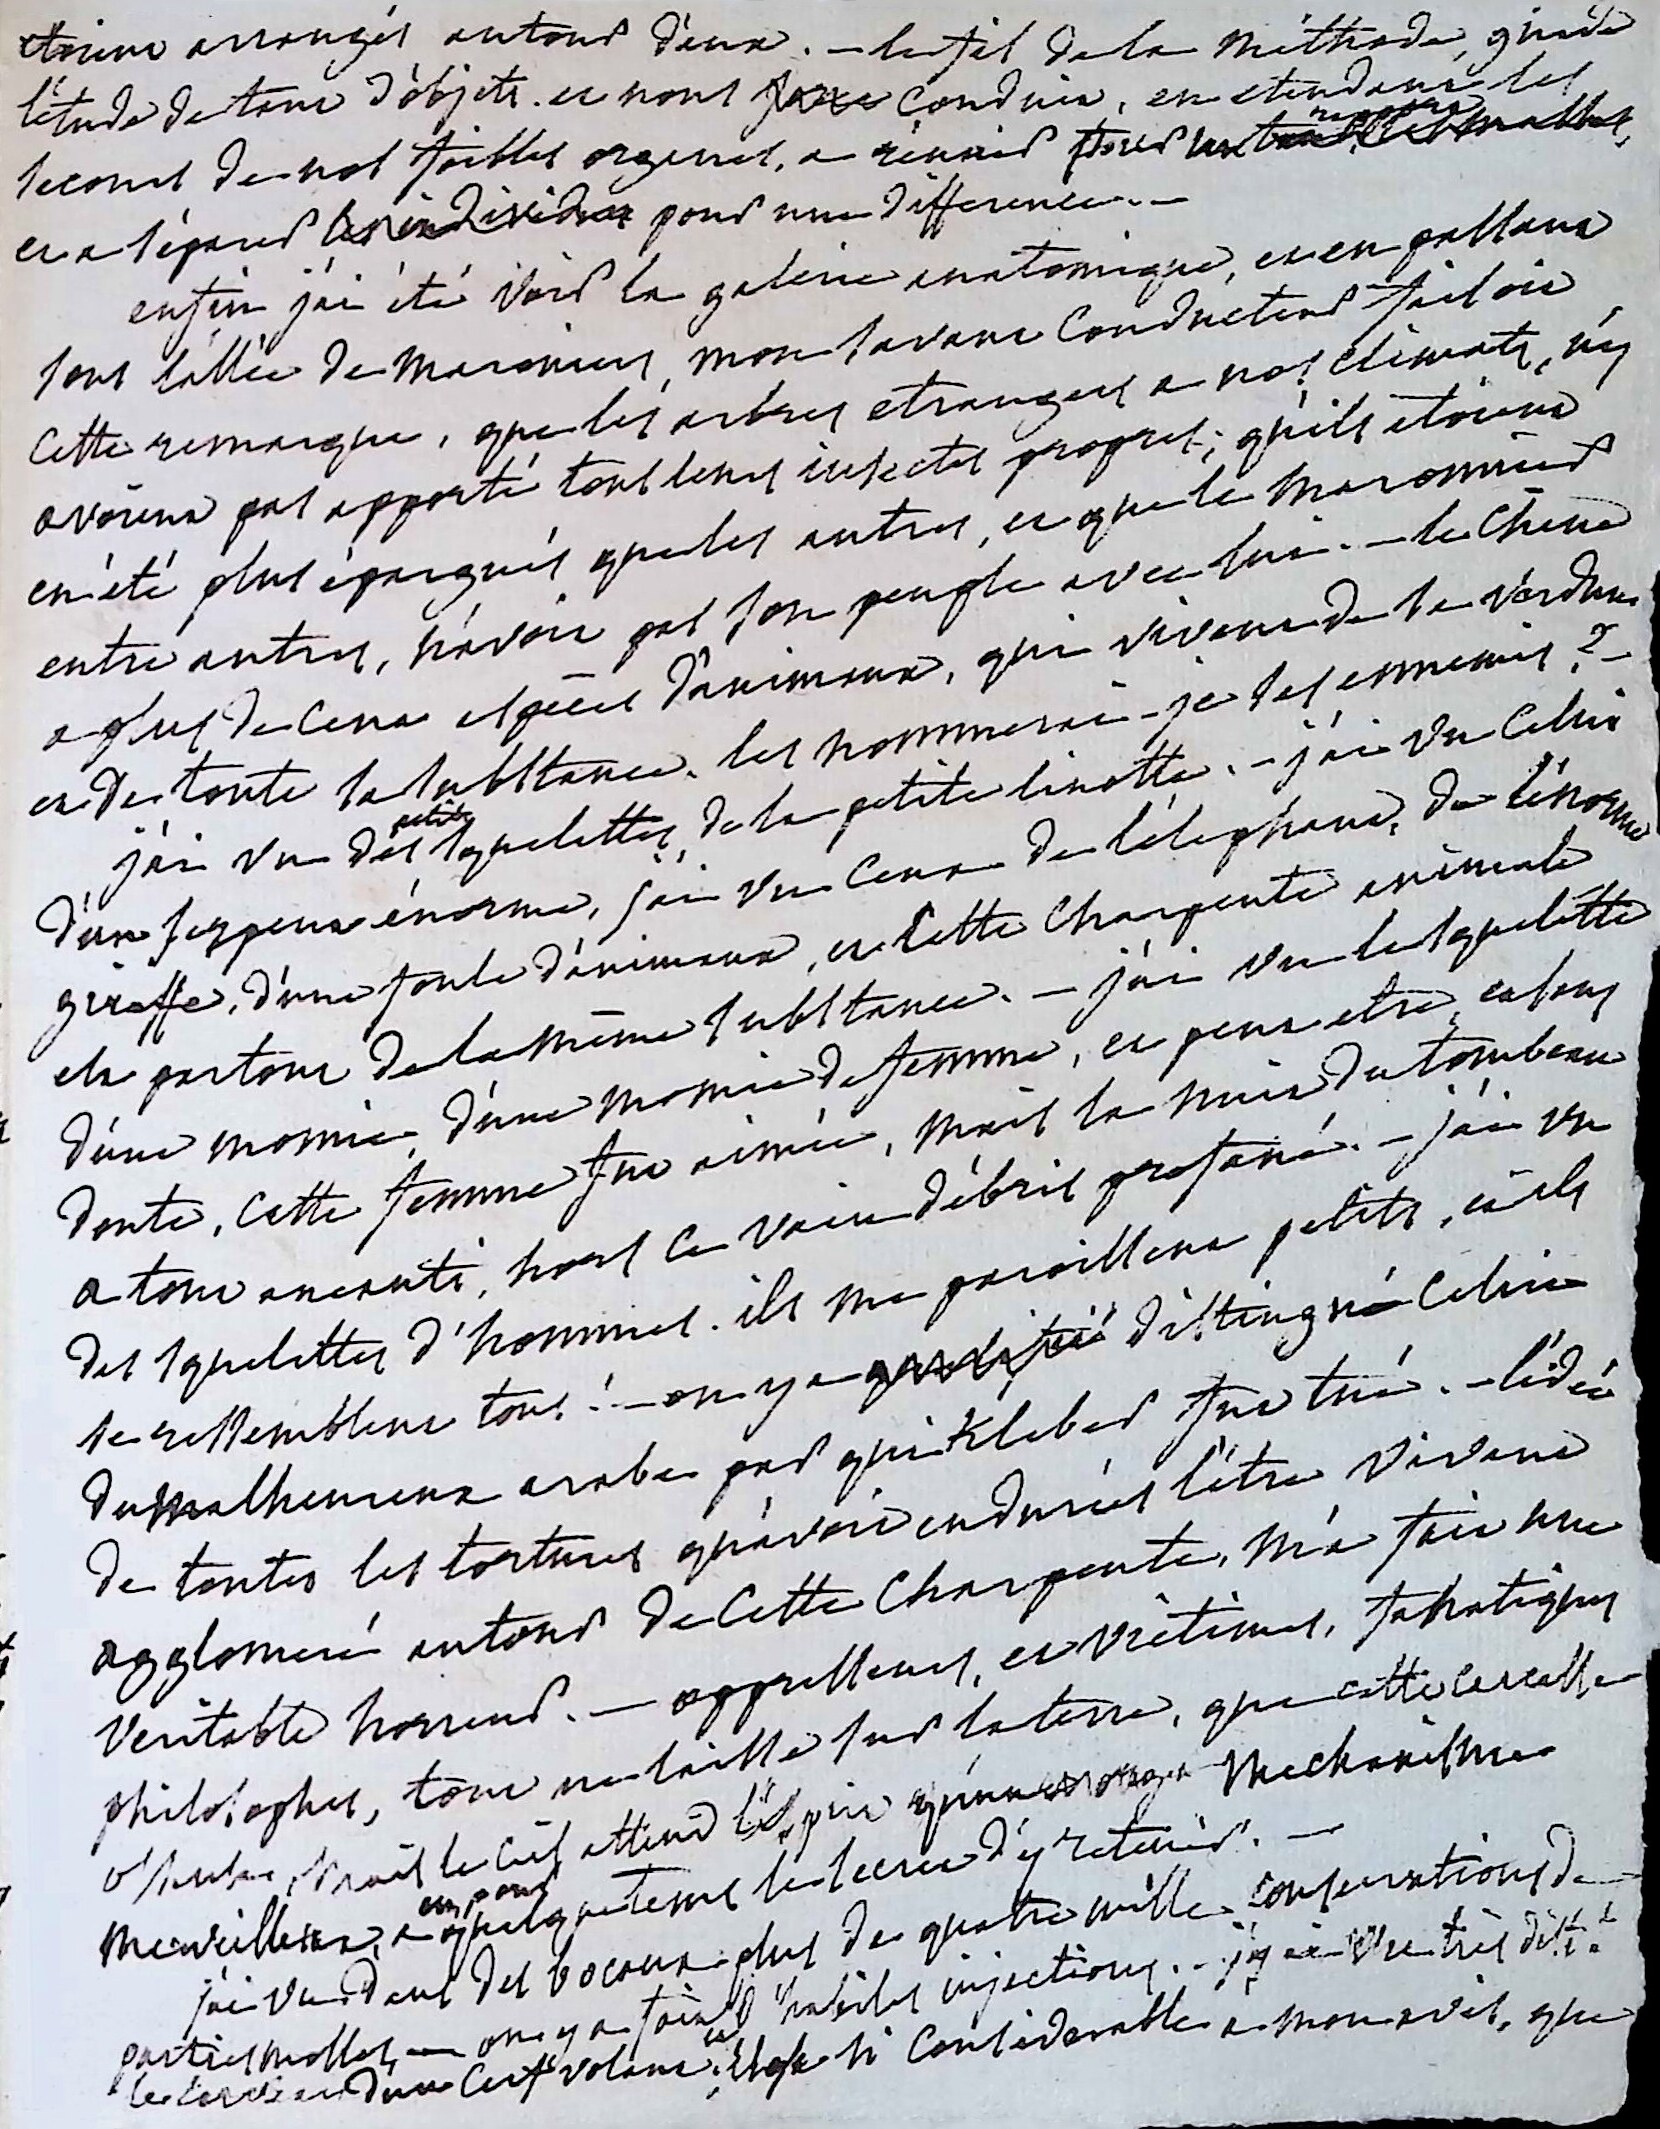 etoient arrangés autour d'eux. – le fil de la méthode, guide
l'étude de tant d'objets. et nous conduit, en etendant les
secours de nos foibles organes, a réunir pour
et a séparer les individus pour une difference. –
enfin j'ai été voir la galerie anatomique, et en passant
sous l'allée de maroniers, mon savant conducteur faisoit
cette remarque, que les arbres etrangers a nos climats, n'y
avoient pas apporté tous leurs insectes propres; qu'ils etoient
en été plus épargnés que les autres, et que le maronnier
entre autres, n'avoit pas son peuple avec lui. – le chene
a plus de cent espèces d'animaux, qui vivent de sa verdure
et de toute sa substance. les nommerai-je ses ennemis? –
j'ai vu des petits squelettes, de la petite linotte. – j'ai vu celui
d'un serpent énorme, j'ai vu ceux de l'élephant, de l'énorme
giraffe, d'une foule d'animaux, et cette charpente animale
est partout de la même substance. – j'ai vu le squelette
d'une momie, d'une momie de femme, et peut etre, et sans
doute, cette femme fut aimée, mais la nuit du tombeau
a tout aneanti, hors ce vain débris profané. – j'ai vu
des squelettes d'hommes. ils me paroissent petits, et ils
se ressemblent tous! – on y a distingué celui
du malheureux arabe par qui Kleber fut tué. – l'idée
de toutes les tortures qu'avoit endurées l'être vivant
agglomeré autour de cette charpente, m'a fait une
veritable horreur. – oppresseurs, et victimes, fanatiques
philosophes, tout ne laisse sur la terre, que cette
mais le ciel attend l'esprit qu'un mechanisme
merveilleux, a eu pour quelque tems le secret d'y retenir. –
j'ai vu dans des bocaux plus de quatre mille conservations de
parties molles, – on y a fait d'habiles injections. – j'y ai vu très
le cerveau d'un cerf volant, si considerable a mon avis, que